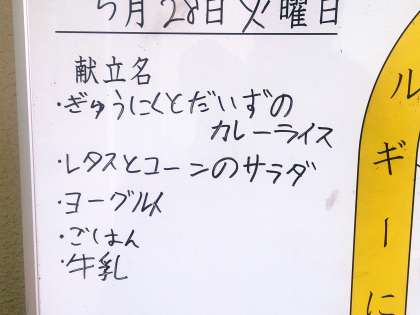 5月28日火曜日
献立名
・ぎゅうにくとだいずの
カレーライス
・レタスとコーンのサラダ
・ヨーグルト
・ごはん
・牛乳
ルギーに